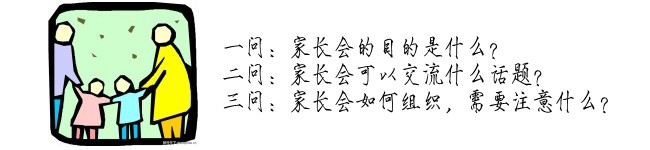 一问：家长会的目的是什么？
二问：家长会可以交流什么话题？
三问：家长会如何组织，需要注意什么？